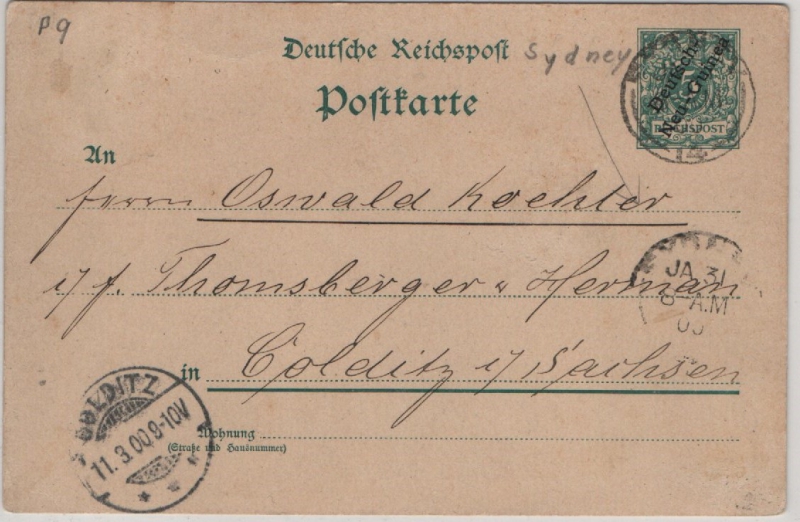 P9
Deutsche Reichspost
Sydney
Postkarte
Deutsch-
Neu-Guinea
5
REICHSPOST
14
An
Herrn Oswald Kochter
i/f. Thomsberger & Herman
SYDNEY
JA 31
8 A.M
00
in Colditz i/Sachsen
COLDITZ
11.3.00.9-10V
Wohnung
(Straße und Hausnummer)